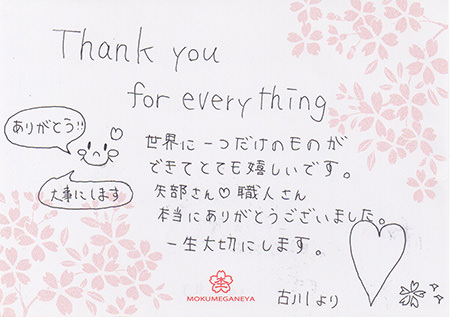 Thank you
for everything
ありがとう!!
大事にします
世界に一つだけのものが
できてとても嬉しいです。
矢部さん♡職人さん
本当にありがとうございました。
一生大切にします。
MOKUMEGANEYA
古川より